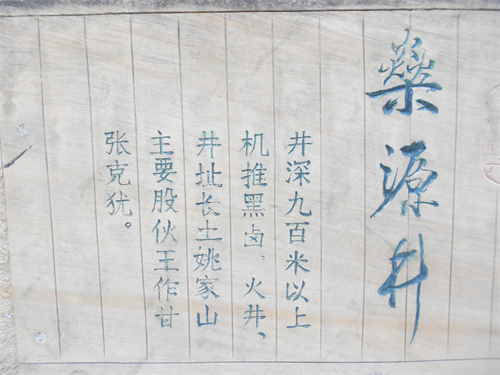 燊源井
井深九百米以上
机推黑卤、火井、
井址长土姚家山
主要股伙王作甘
张克犹。